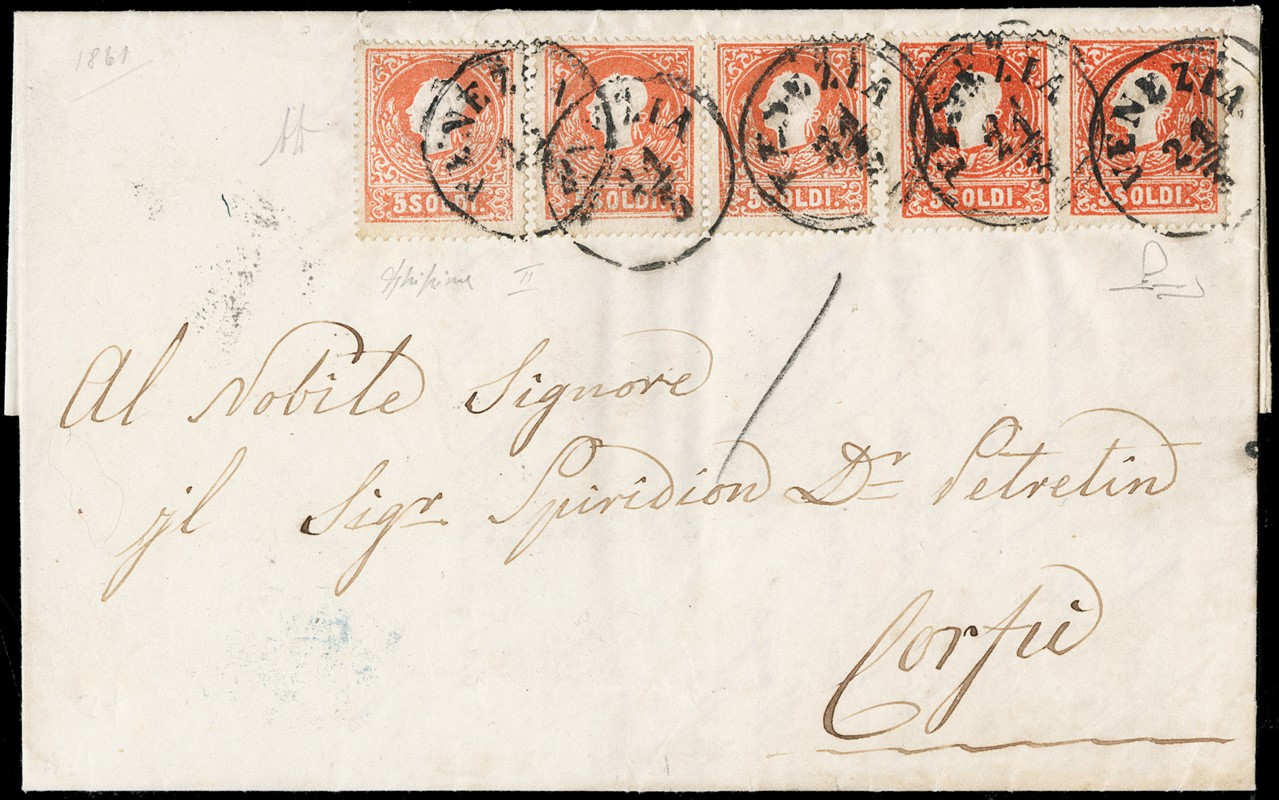 1861
5 SOLDI. 5 SOLDI. 5 SOLDI. 5 SOLDI. 5 SOLDI.
VENEZIA VENEZIA VENEZIA VENEZIA VENEZIA
II
Al Nobile Signore
jl Sigr. Spiridion Dr Petretin
Corfù